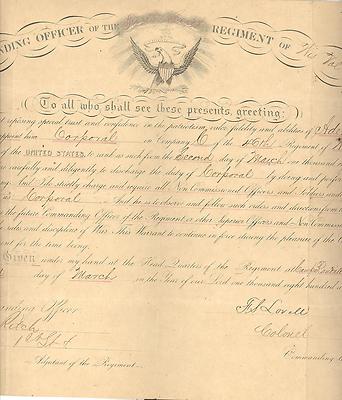 NDING OFFICER OF THE REGIMENT OF
To all who shall see these presents, greeting:
reposing special trust and confidence in the patriotism, valor, fidelity and abilities of
appoint him Corporal in Company C of the 46th Regiment of
of the UNITED STATES, to rank as such from the Second day of March one thousand
carefully and diligently to discharge the duty of Corporal by doing and perfor
ing. And I do strictly charge and require all Non-Commissioned Officers and Soldiers under
as Corporal. And he is to observe and follow such orders and directions from
the future Commanding Officer of the Regiment or other Superior Officers and Non-Comm
rules and discipline of War. This Warrant to continue in force during the pleasure of the
ent for the time being.
Given under my hand at the Head Quarters of the Regiment at Camp
day of March in the Year of our Lord one thousand eight hundred a
anding Officer
F S Lovell
Colonel
1st Lt &
Adjutant of the Regiment.
Commanding